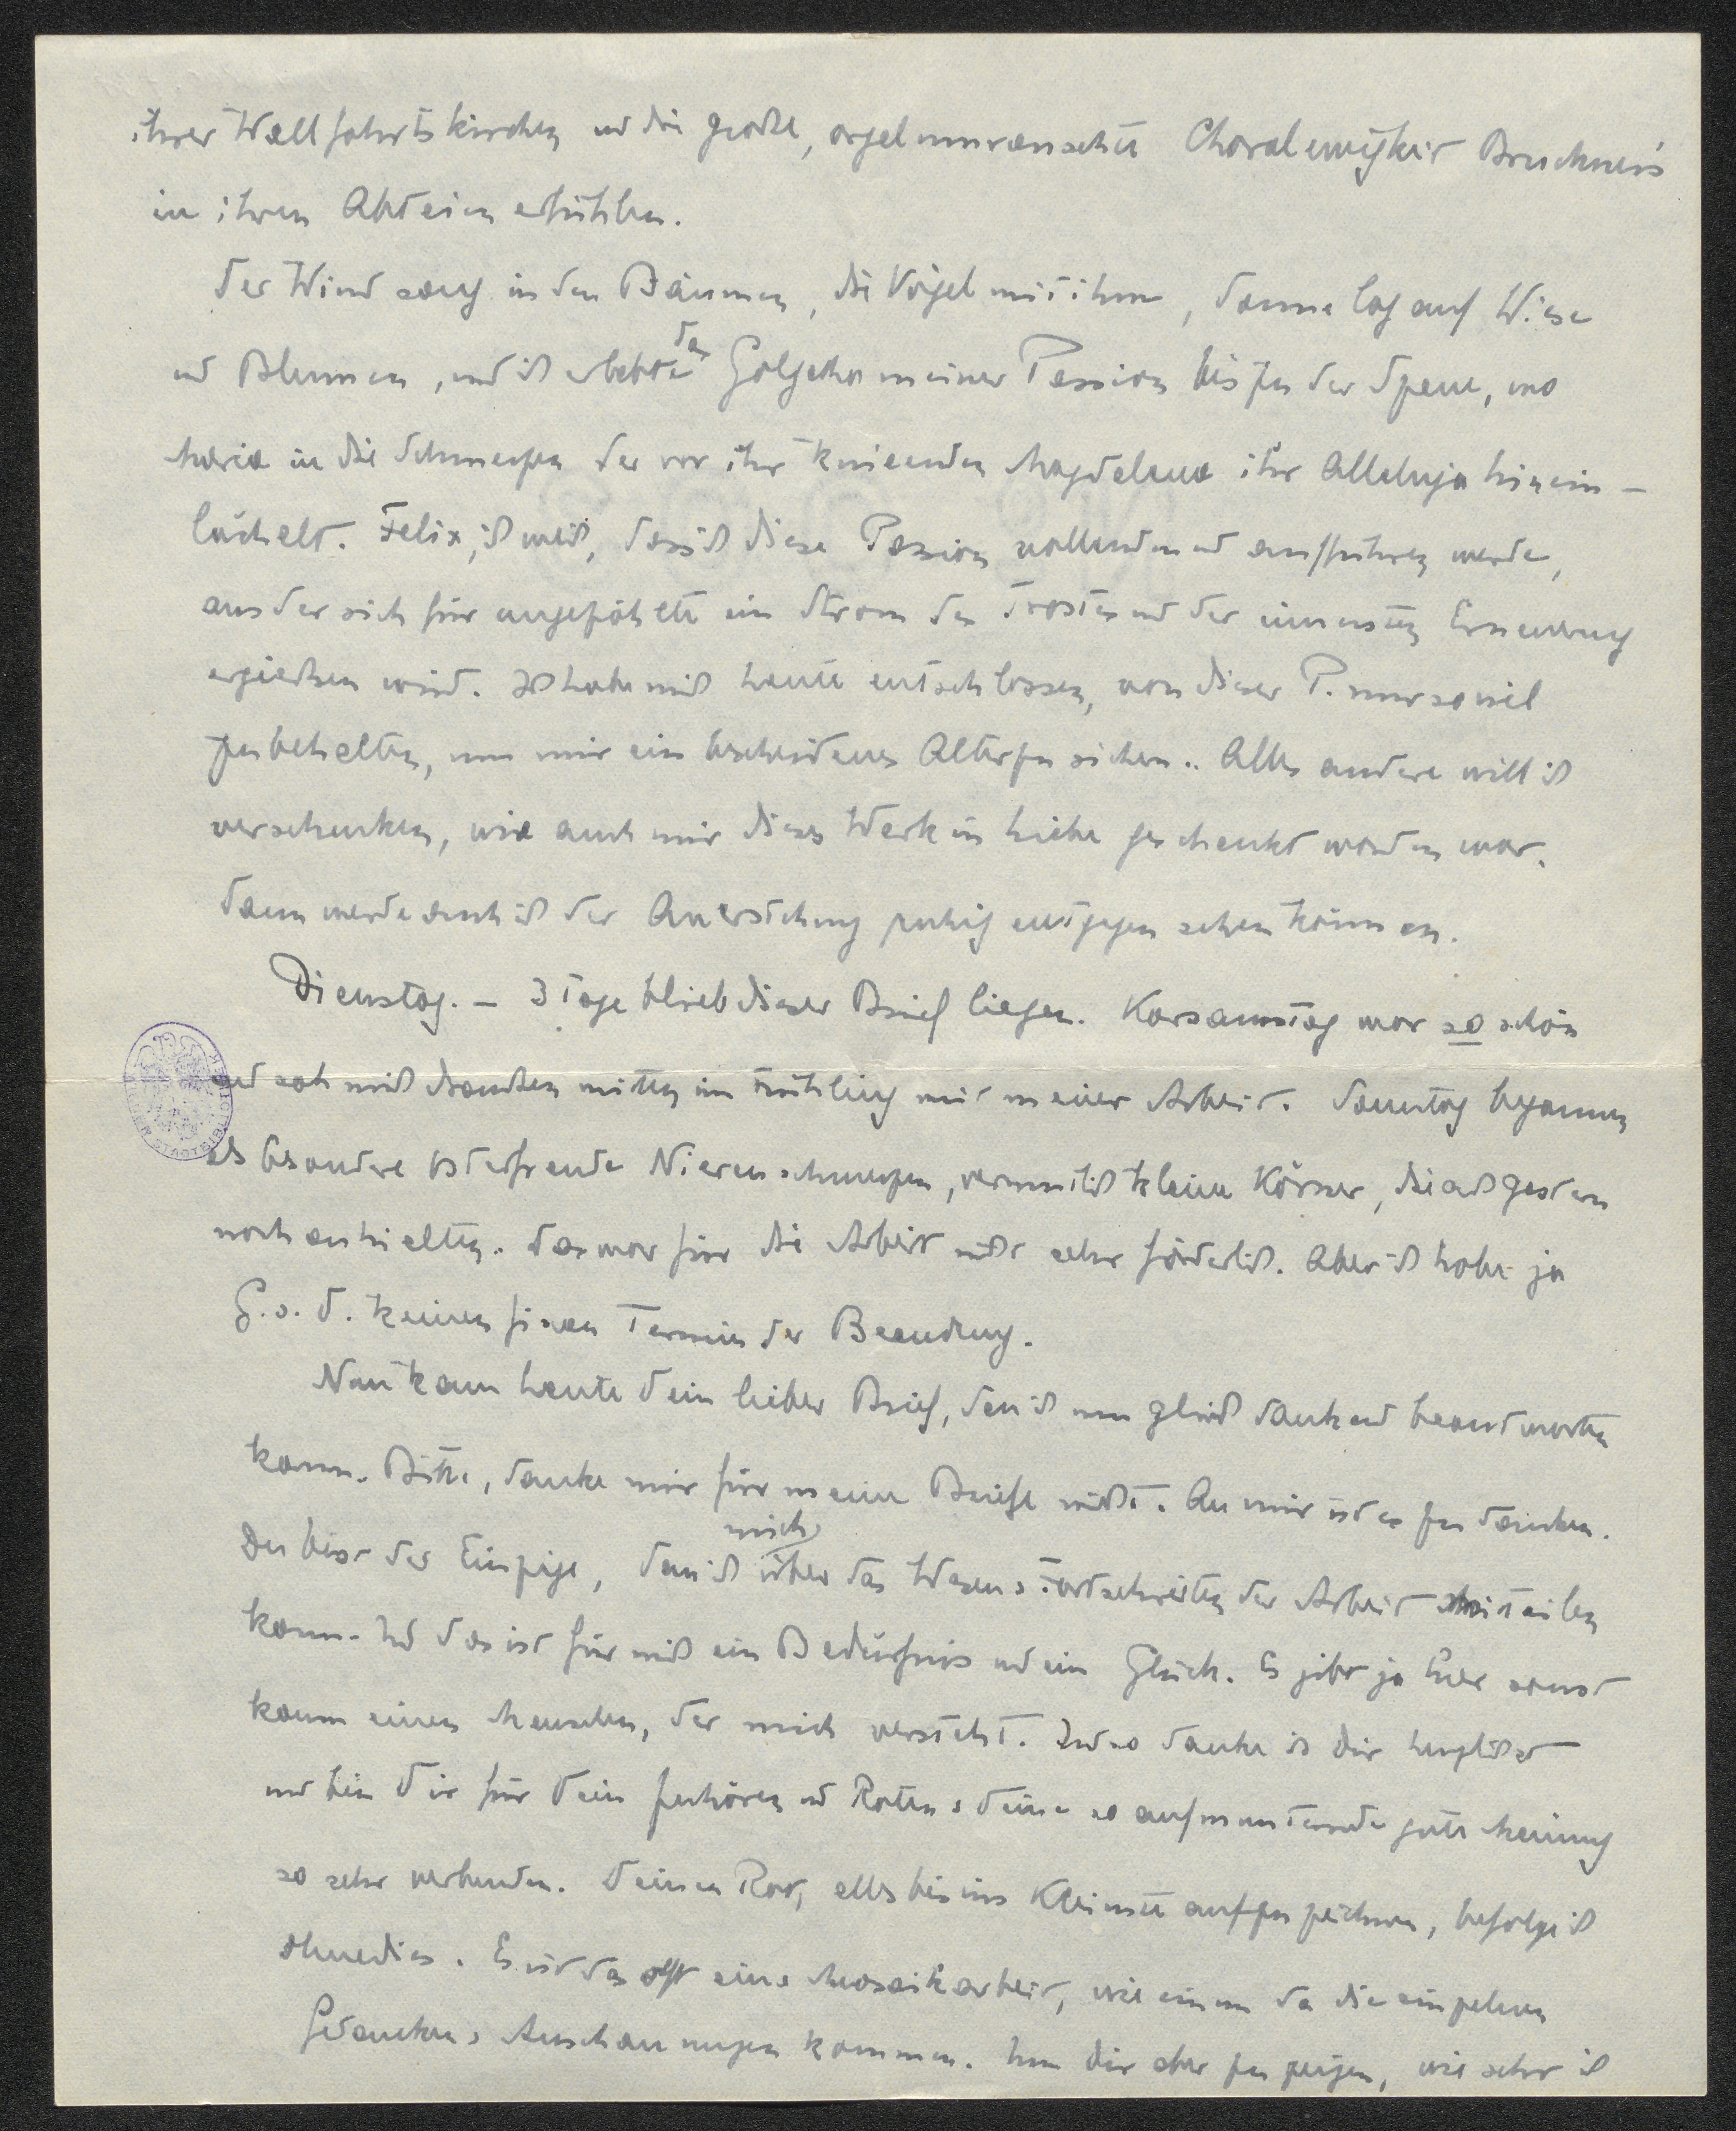 ihrer Wallfahrtskirchen und die große, orgelumrauschte Choralewigkeit Bruckners
in ihren Abteien erfühlen.
Der Wind sang in den Bäumen, die Vögel mit ihm, Sonne lag auf Wiese
und Blumen, und ich erlebte das Golgatha meiner Passion bis zu der Szene, wo
Maria in die Schmerzen der vor ihr knieenden Magdalena ihr Alleluja hinein-
lächelt. Felix, ich weiß, dass ich diese Passion vollenden und aufführen werde,
aus der sich für ungezählte ein Strom des Trostes und der innersten Erneuerung
ergießen wird. Ich habe mich heute entschlossen, von dieser P. nur soviel
zu behalten, um mir ein bescheidenes Alter zu sichern. Alles andere will ich
verschenken, wie auch mir dieses Werk in Liebe geschenkt worden war.
Dann werde auch ich der Auferstehung ruhig entgegen sehen können.
Dienstag. – 3 Tage blieb dieser Brief liegen. Karsamstag war so schön
und sah mich draußen mitten im Frühling mit meiner Arbeit. Sonntag begannen
als besondere Osterfreude Nierenschmerzen, vermutlich kleine Körner, die auch gestern
noch anhielten. Das war für die Arbeit nicht sehr förderlich. Aber ich habe ja
G. s. D. keinen fixen Termin der Beendung.
Nun kam heute Dein lieber Brief, den ich nun gleich dankend beantworten
kann. Bitte, danke mir für meine Briefe nicht. An mir ist es zu danken.
Du bist der Einzige, dem ich mich über das Wesen & Fortschreiten der Arbeit mitteilen
kann. Und das ist für mich ein Bedürfnis und ein Glück. Es gibt ja hier sonst
kaum einen Menschen, der mich versteht. Und so danke ich Dir herzlichst
und bin Dir für Dein Zuhören und Raten & Deine so aufmunternde gute Meinung
so sehr verbunden. Deinen Rat, alles bis ins Kleinste aufzuzeichnen, befolge ich
ohnedies. Es ist das oft eine Mosaikarbeit, wie einem da die einzelnen
Gedanken & Anschauungen kommen. Um Dir aber zu zeigen, wie sehr ich